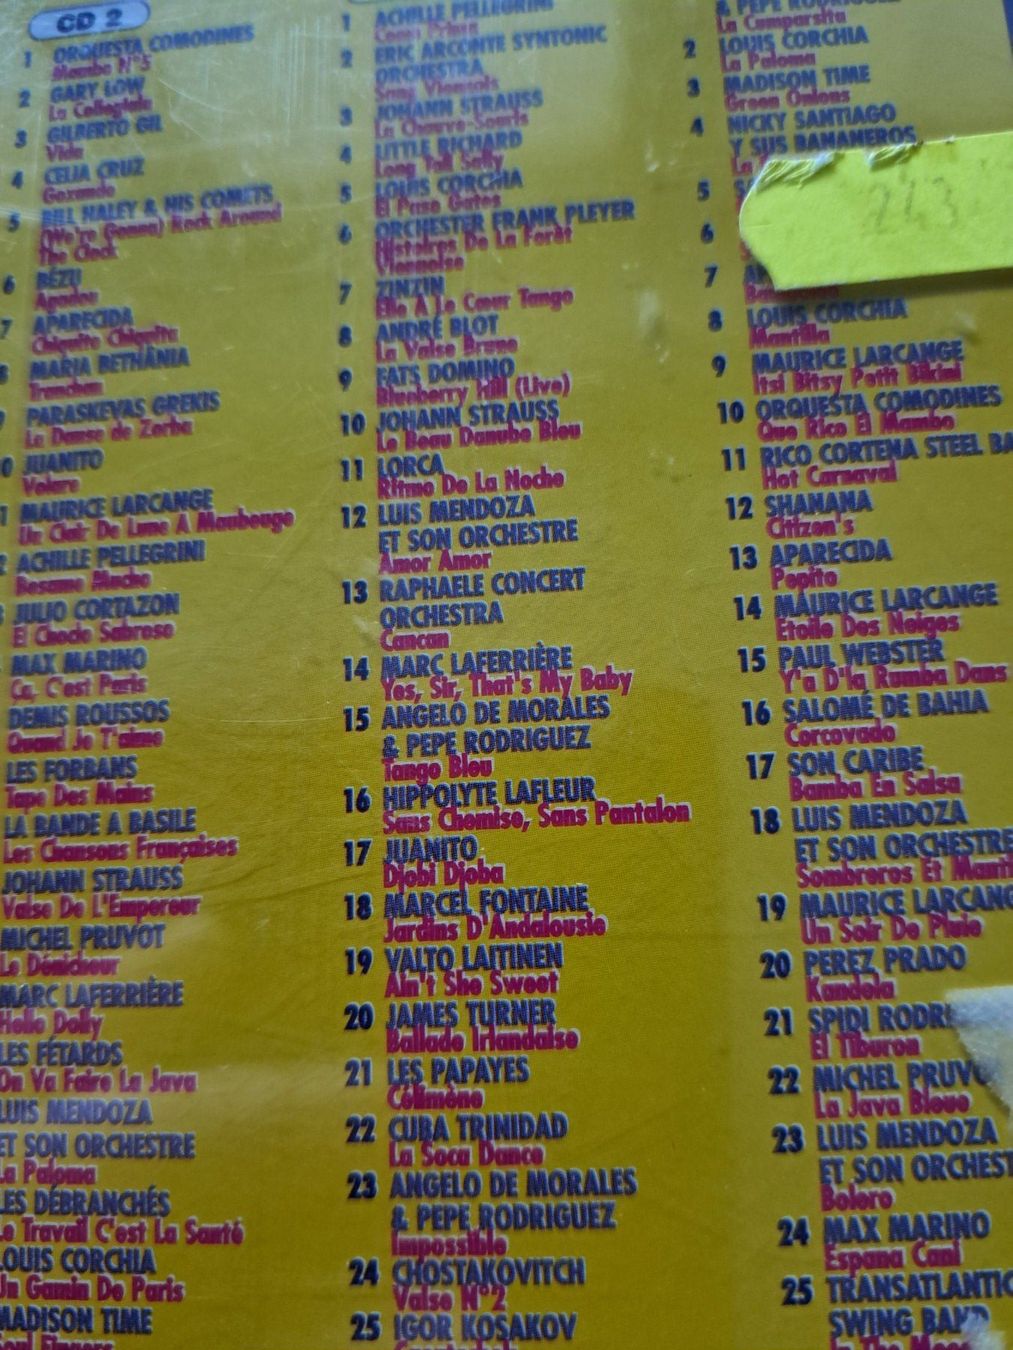 CD 2
1 ORQUESTA COMODINES
Mambo N°5
2 GARY LOW
La Collegiala
3 GILBERTO GIL
Vida
4 CELIA CRUZ
Gozando
5 BILL HALEY & HIS COMETS
(We're Gonna) Rock Around
The Clock
6 BÉZU
Agadou
7 APARECIDA
Chiquito Chiquito
MARIA BETHÂNIA
Trombem
PARASKEVAS GREKIS
La Danse de Zorba
0 JUANITO
Volare
1 MAURICE LARCANGE
Un Clair De Lune A Maubeuge
2 ACHILLE PELLEGRINI
Besame Mucho
3 JULIO CORTAZON
El Choclo Sabroso
MAX MARINO
Ça, C'est Paris
DEMIS ROUSSOS
Quand Je T'aime
LES FORBANS
Tape Des Mains
LA BANDE A BASILE
Les Chansons Françaises
JOHANN STRAUSS
Valse De L'Empereur
MICHEL PRUVOT
Le Dénicheur
MARC LAFERRIÈRE
Hello Dolly
LES FÊTARDS
On Va Faire La Java
LUIS MENDOZA
ET SON ORCHESTRE
La Paloma
LES DÉBRANCHÉS
Le Travail C'est La Santé
LOUIS CORCHIA
Un Gamin De Paris
MADISON TIME
Soul Fingers
1 ACHILLE PELLEGRINI
2 ERIC ARCONTE SYNTONIC
ORCHESTRA
Sang Viennois
3 JOHANN STRAUSS
La Chauve-Souris
4 LITTLE RICHARD
Long Tall Sally
5 LOUIS CORCHIA
El Paso Gates
6 ORCHESTER FRANK PLEYER
Histoires De La Forêt
Viennoise
7 ZINZIN
Elle A Le Cœur Tango
8 ANDRÉ BLOT
La Valse Brune
9 FATS DOMINO
Blueberry Hill (Live)
10 JOHANN STRAUSS
Le Beau Danube Bleu
11 LORCA
Ritmo De La Noche
12 LUIS MENDOZA
ET SON ORCHESTRE
Amor Amor
13 RAPHAELE CONCERT
ORCHESTRA
Cancan
14 MARC LAFERRIÈRE
Yes, Sir, That's My Baby
15 ANGELO DE MORALES
& PEPE RODRIGUEZ
Tango Bleu
16 HIPPOLYTE LAFLEUR
Sans Chemise, Sans Pantalon
17 JUANITO
Djobi Djoba
18 MARCEL FONTAINE
Jardins D'Andalousie
19 VALTO LAITINEN
Ain't She Sweet
20 JAMES TURNER
Ballade Irlandaise
21 LES PAPAYES
Célimène
22 CUBA TRINIDAD
La Soca Dance
23 ANGELO DE MORALES
& PEPE RODRIGUEZ
Impossible
24 CHOSTAKOVITCH
Valse N°2
25 IGOR KOSAKOV
& PEPE RODRIGUEZ
La Cumparsita
2 LOUIS CORCHIA
La Paloma
3 MADISON TIME
Green Onions
4 NICKY SANTIAGO
Y SUS BANANEROS
La
5
6
7
8 LOUIS CORCHIA
Mantilla
9 MAURICE LARCANGE
Itsi Bitsy Petit Bikini
10 ORQUESTA COMODINES
Que Rico El Mambo
11 RICO CORTENA STEEL BA
Hot Carnaval
12 SHANANA
Citizen's
13 APARECIDA
Pepito
14 MAURICE LARCANGE
Etoile Des Neiges
15 PAUL WEBSTER
Y'a D'la Rumba Dans
16 SALOMÉ DE BAHIA
Corcovado
17 SON CARIBE
Bamba En Salsa
18 LUIS MENDOZA
ET SON ORCHESTRE
Sombreros Et Manti
19 MAURICE LARCANG
Un Soir De Pluie
20 PEREZ PRADO
Kandela
21 SPIDI RODRI
El Tiburon
22 MICHEL PRUVO
La Java Bleue
23 LUIS MENDOZA
ET SON ORCHEST
Bolero
24 MAX MARINO
Espana Cani
25 TRANSATLANTIC
SWING BAND
In The Moo